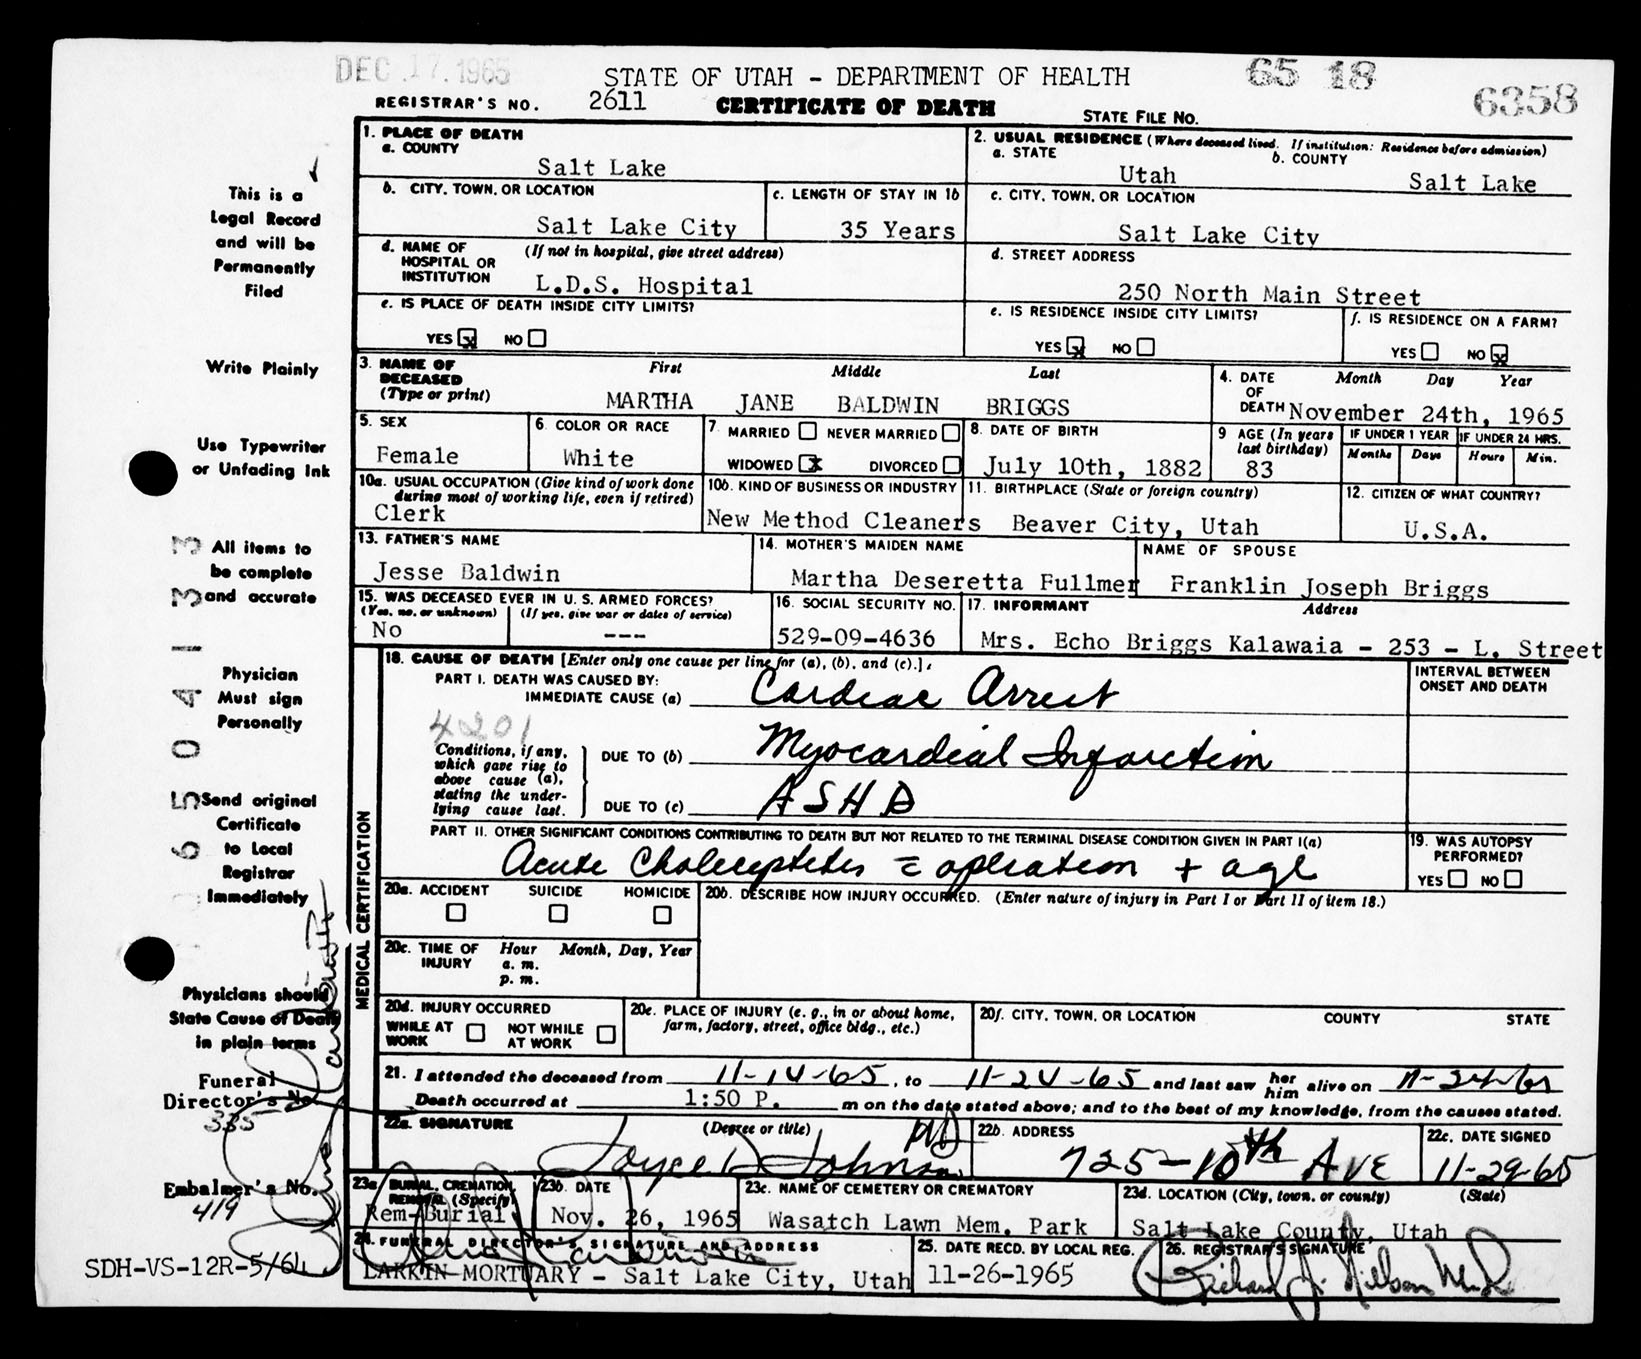 DEC 17 1965
STATE OF UTAH - DEPARTMENT OF HEALTH
65 18
6358
REGISTRAR'S NO. 2611
CERTIFICATE OF DEATH
STATE FILE NO.
This is a
Legal Record
and will be
Permanently
Filed
Write Plainly
Use Typewriter
or Unfading Ink
All items to
be complete
and accurate
Physician
Must sign
Personally
Send original
Certificate
to Local
Registrar
Immediately
Physicians should
State Cause of Death
in plain terms
Funeral
Director's No.
335
Embalmer's No.
419
SDH-VS-12R-5/64
65 04133
1. PLACE OF DEATH
a. COUNTY
Salt Lake
2. USUAL RESIDENCE (Where deceased lived. If institution: Residence before admission)
a. STATE
Utah
b. COUNTY
Salt Lake
b. CITY, TOWN, OR LOCATION
Salt Lake City
c. LENGTH OF STAY IN 1b
35 Years
c. CITY, TOWN, OR LOCATION
Salt Lake City
d. NAME OF HOSPITAL OR INSTITUTION
(If not in hospital, give street address)
L.D.S. Hospital
d. STREET ADDRESS
250 North Main Street
e. IS PLACE OF DEATH INSIDE CITY LIMITS?
YES x NO
e. IS RESIDENCE INSIDE CITY LIMITS?
YES x NO
f. IS RESIDENCE ON A FARM?
YES NO x
3. NAME OF DECEASED (Type or print)
First Middle Last
MARTHA JANE BALDWIN BRIGGS
4. DATE OF DEATH
Month Day Year
November 24th, 1965
5. SEX
Female
6. COLOR OR RACE
White
7. MARRIED NEVER MARRIED
WIDOWED x DIVORCED
8. DATE OF BIRTH
July 10th, 1882
9 AGE (In years last birthday)
83
IF UNDER 1 YEAR
Months Days
IF UNDER 24 HRS.
Hours Min.
10a. USUAL OCCUPATION (Give kind of work done during most of working life, even if retired)
Clerk
10b. KIND OF BUSINESS OR INDUSTRY
New Method Cleaners
11. BIRTHPLACE (State or foreign country)
Beaver City, Utah
12. CITIZEN OF WHAT COUNTRY?
U.S.A.
13. FATHER'S NAME
Jesse Baldwin
14. MOTHER'S MAIDEN NAME
Martha Deseretta Fullmer
NAME OF SPOUSE
Franklin Joseph Briggs
15. WAS DECEASED EVER IN U. S. ARMED FORCES?
(Yes, no, or unknown) (If yes, give war or dates of service)
No ---
16. SOCIAL SECURITY NO.
529-09-4636
17. INFORMANT Address
Mrs. Echo Briggs Kalawaia - 253 - L. Street
MEDICAL CERTIFICATION
18. CAUSE OF DEATH [Enter only one cause per line for (a), (b), and (c).]
PART I. DEATH WAS CAUSED BY:
IMMEDIATE CAUSE (a) Cardiac Arrest
INTERVAL BETWEEN ONSET AND DEATH
4201
Conditions, if any, which gave rise to above cause (a), stating the underlying cause last.
DUE TO (b) Myocardial Infarction
DUE TO (c) ASHD
PART II. OTHER SIGNIFICANT CONDITIONS CONTRIBUTING TO DEATH BUT NOT RELATED TO THE TERMINAL DISEASE CONDITION GIVEN IN PART I(a)
Acute Cholecystitis = operation + age
19. WAS AUTOPSY PERFORMED?
YES NO
20a. ACCIDENT SUICIDE HOMICIDE
20b. DESCRIBE HOW INJURY OCCURRED. (Enter nature of injury in Part I or Part II of item 18.)
20c. TIME OF INJURY
Hour Month, Day, Year
a. m.
p. m.
20d. INJURY OCCURRED
WHILE AT WORK NOT WHILE AT WORK
20e. PLACE OF INJURY (e. g., in or about home, farm, factory, street, office bldg., etc.)
20f. CITY, TOWN, OR LOCATION COUNTY STATE
21. I attended the deceased from 11-14-65, to 11-24-65 and last saw her him alive on 11-24-65
Death occurred at 1:50 P. m on the date stated above; and to the best of my knowledge, from the causes stated.
22a. SIGNATURE (Degree or title)
Joyce D Johnson MD
22b. ADDRESS
725-10th AVE
22c. DATE SIGNED
11-29-65
23a BURIAL, CREMATION, REMOVAL (Specify)
Rem-Burial
23b. DATE
Nov. 26, 1965
23c. NAME OF CEMETERY OR CREMATORY
Wasatch Lawn Mem. Park
23d. LOCATION (City, town, or county) (State)
Salt Lake County, Utah
24. FUNERAL DIRECTOR'S SIGNATURE AND ADDRESS
LARKIN MORTUARY - Salt Lake City, Utah
25. DATE RECD. BY LOCAL REG.
11-26-1965
26. REGISTRAR'S SIGNATURE
Richard J. Nilsen M.D.